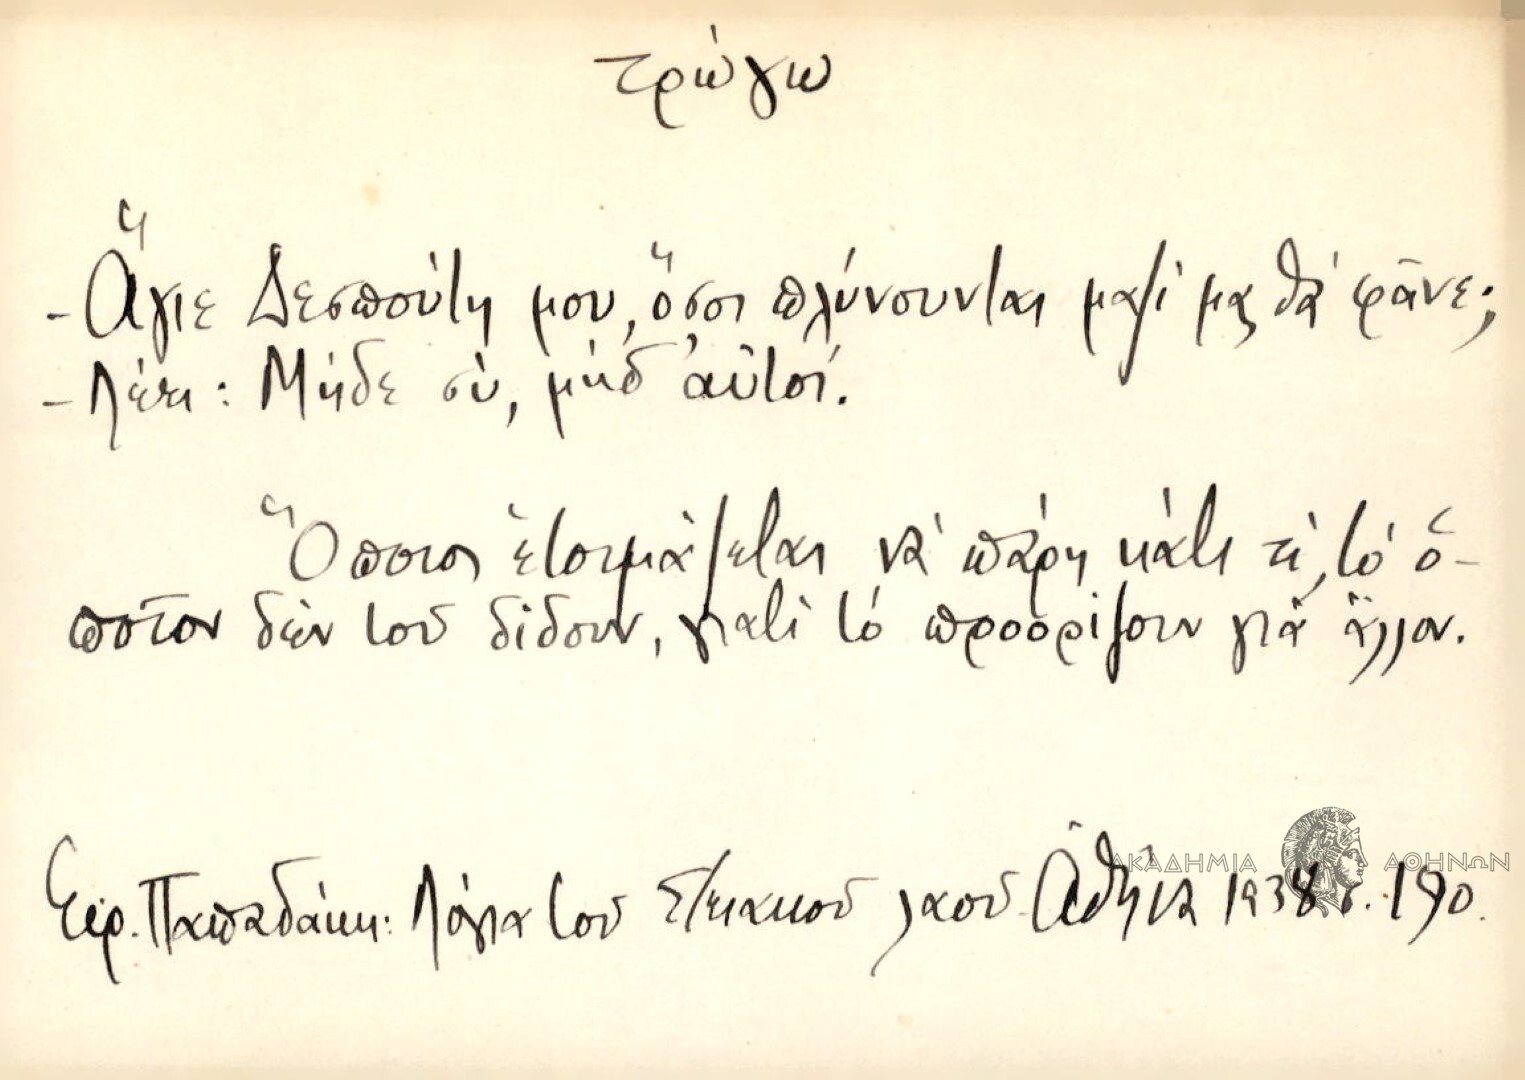 τρώγω
- Ἅγιε Δεσπότη μου, ὅσοι πλύνουνται μαζὶ μας θὰ φᾶνε;
- Λέει: Μήδε σὺ, μήδ' αὐτοί.
Ὅποιος ἑτοιμάζεται νὰ πάρη κάτι τι, τὸ ὁ-
ποῖον δὲν τοῦ δίδουν, γιατὶ τὸ προορίζουν γιὰ ἄλλον.
Εἰρ. Παπαδάκη: Λόγια τοῦ Στειακοῦ λαοῦ. Ἀθήνα 1938 σ. 190.
ΑΚΑΔΗΜΙΑ ΑΘΗΝΩΝ